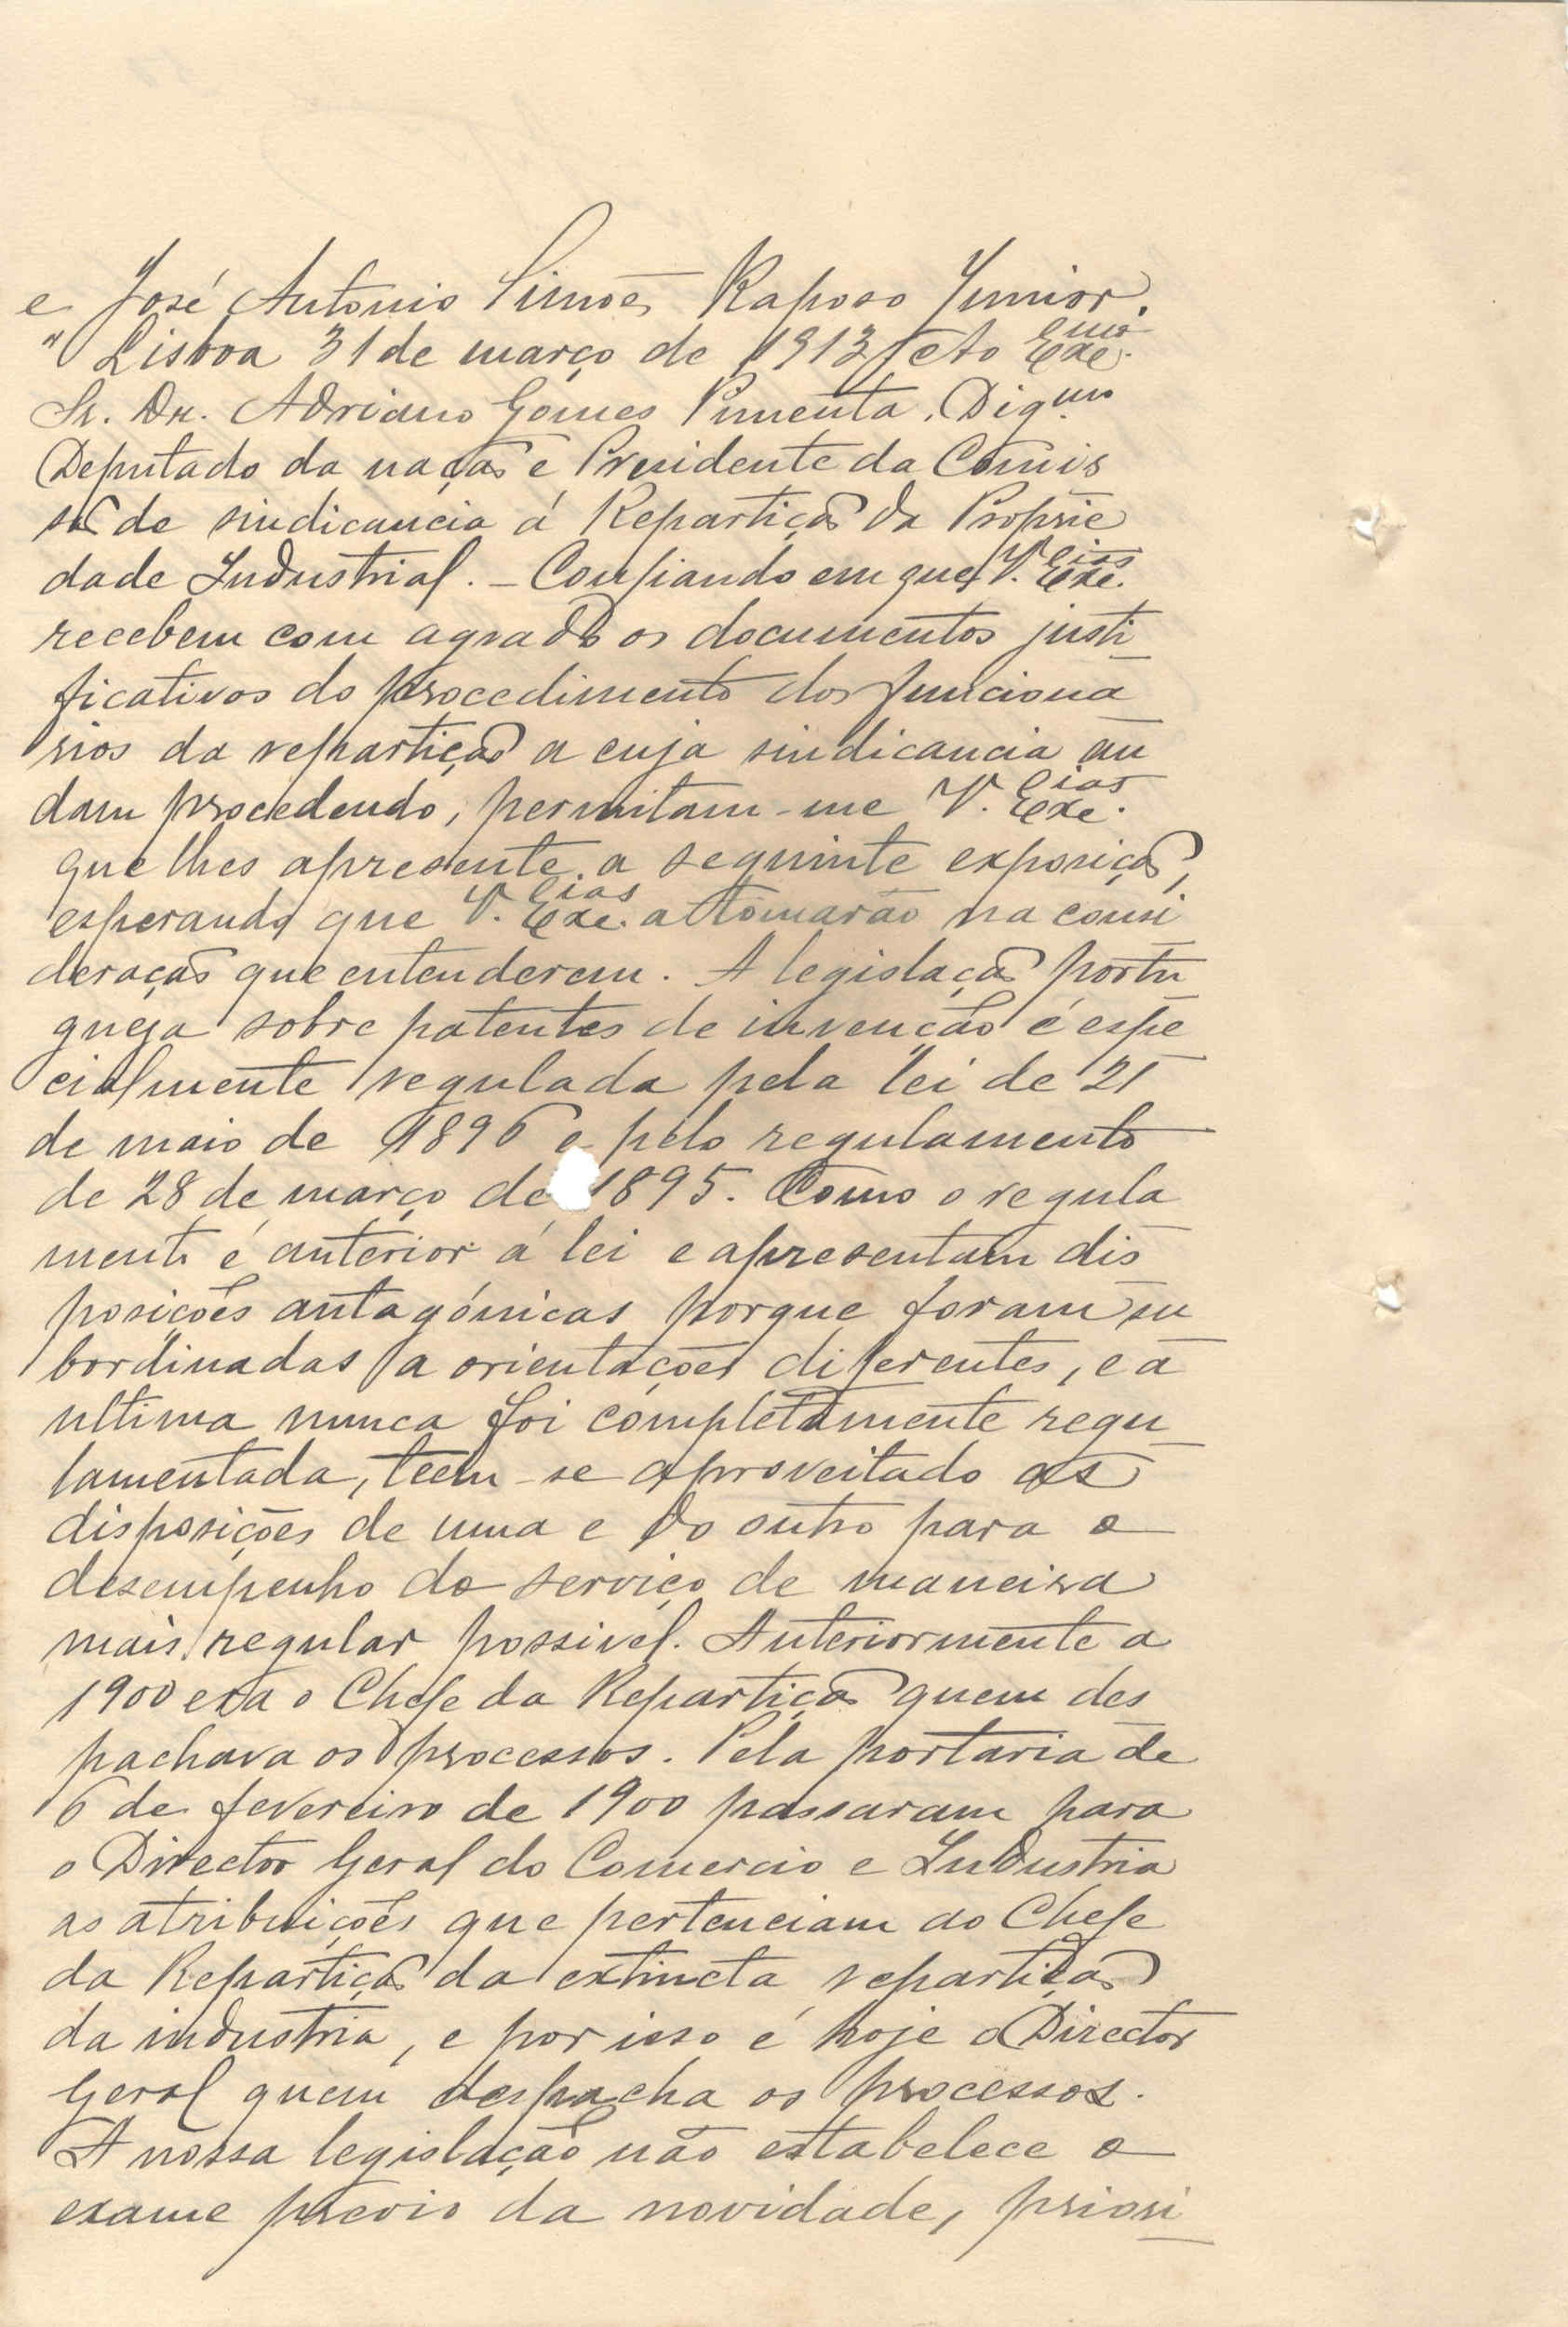 e José Antonio Simões Raposo Junior.
" Lisboa 31 de março de 1913 Ao Exc.mo
Sr. Dr. Adriano Gomes Pimenta, Dig.mo
Deputado da nação e Presidente da Comis
são de sindicancia á Repartição da Proprie
dade Industrial. - Confiando em que V. Exc.cias
recebem com agrado os documentos justi
ficativos do procedimento dos funciona
rios da repartição a cuja sindicancia an
dam procedendo, permitam-me V. Exc.cias
que lhes apresente a seguinte exposição,
esperando que V. Exc.cias a tomarão na consi
deração que entenderem. A legislação portu
gueza sobre patentes de invenção é espe
cialmente regulada pela lei de 21
de maio de 1896 e pelo regulamento
de 28 de março de 1895. Como o regula
mento é anterior á lei e apresentam dis
posições antagónicas porque foram su
bordinadas a orientações diferentes, e a
ultima nunca foi completamente regu
lamentada, teem-se aproveitado as
disposições de uma e do outro para o
desempenho do serviço de maneira
mais regular possivel. Anteriormente a
1900 era o Chefe da Repartição quem des
pachava os processos. Pela portaria de
6 de fevereiro de 1900 passaram para
o Director Geral do Comercio e Industria
as atribuições que pertenciam ao Chefe
da Repartição da extincta repartição
da industria, e por isso é hoje o Director
Geral quem despacha os processos.
A nossa legislação não estabelece o
exame previo da novidade, priori